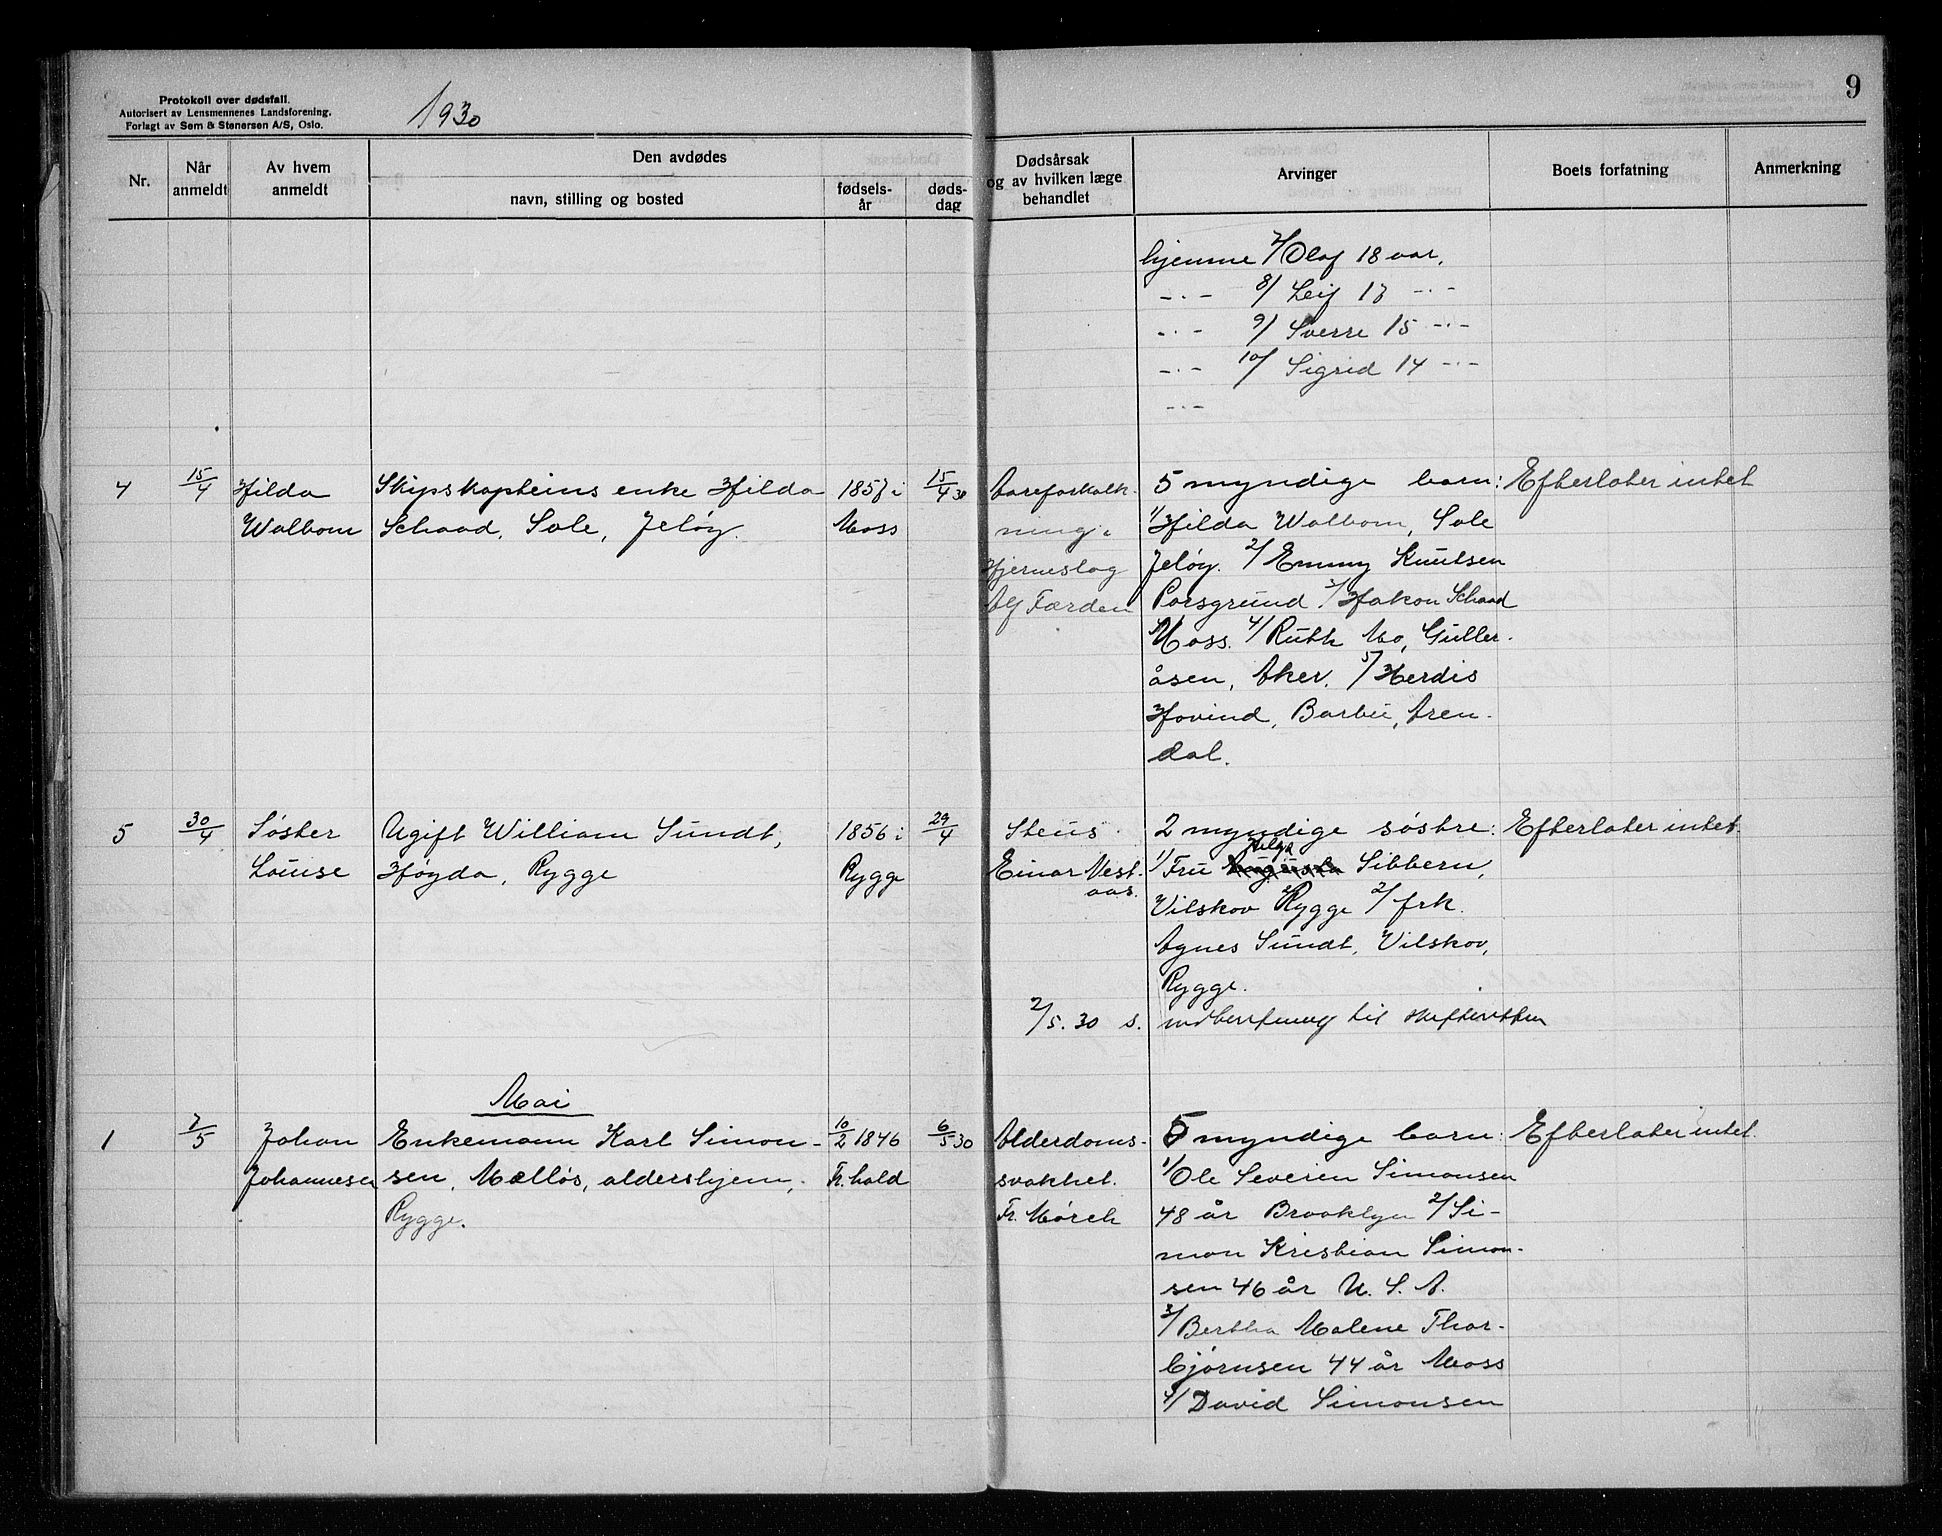 9
Protokoll over dødsfall.
Autorisert av Lensmennenes Landsforening.
Forlagt av Sem & Stenersen A/S, Oslo.
1930
Nr.
Når anmeldt
Av hvem anmeldt
Den avdødes
navn, stilling og bosted
fødsels-år
døds-dag
Dødsårsak og av hvilken læge behandlet
Arvinger
Boets forfatning
Anmerkning
hjemme 7/ Olaf 18 aar.
-"- 8/ Leif 17 -"-
-"- 9/ Sverre 15 -"-
-"- 10/ Sigrid 14 -"-
-"-
4
15/4
Hilda
Walbom
Skipskapteins enke Hilda
Schaad, Sole, Jeløy.
1857 i
Moss
15/4 30
Aareforkalk-
ning.
Hjerneslag
Alf Færden
5 myndige barn:
1/ Hilda Walbom, Sole
Jeløy. 2/ Emmy Knutsen
Porsgrund 3/ Hakon Schaad
Moss. 4/ Ruth Mo, Guller-
åsen, Aker. 5/ Herdis
Hovind, Barbu, Aren-
dal.
Efterlater intet
5
30/4
Søster
Louise
Ugift William Sundt,
Høyda, Rygge
1856 i
Rygge
29/4
Einar Vest-
aas.
2 myndige søstre:
Helga
1/ Fru Sibbern,
Vilskov Rygge 2/ frk.
Agnes Sundt, Vilskov,
Rygge.
2/5. 30 s. indberetning til skifteretten
Efterlater intet.
Mai
1
7/5
Johan
Johannesen
Enkemann Karl Simon-
sen, Mælløs, aldershjem,
Rygge.
10/2 1846
Fr.hald
6/5 30
Alderdoms-
svakhet.
Fr. Mørch
5 myndige barn:
1/ Ole Severin Simonsen
48 år Brooklyn 2/ Si-
mon Kristian Simon-
sen 46 år U. S. A.
3/ Bertha Malene Thor-
bjørnsen 44 år Moss
4/ David Simonsen
Efterlater intet.